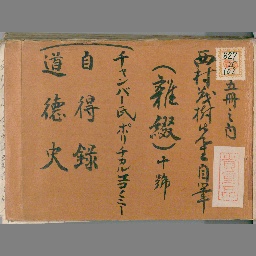 五冊之内
西村茂樹先生自筆
(雑綴)十號
チャンバー氏ポリチカルエコノミー
自得録
道徳史
827